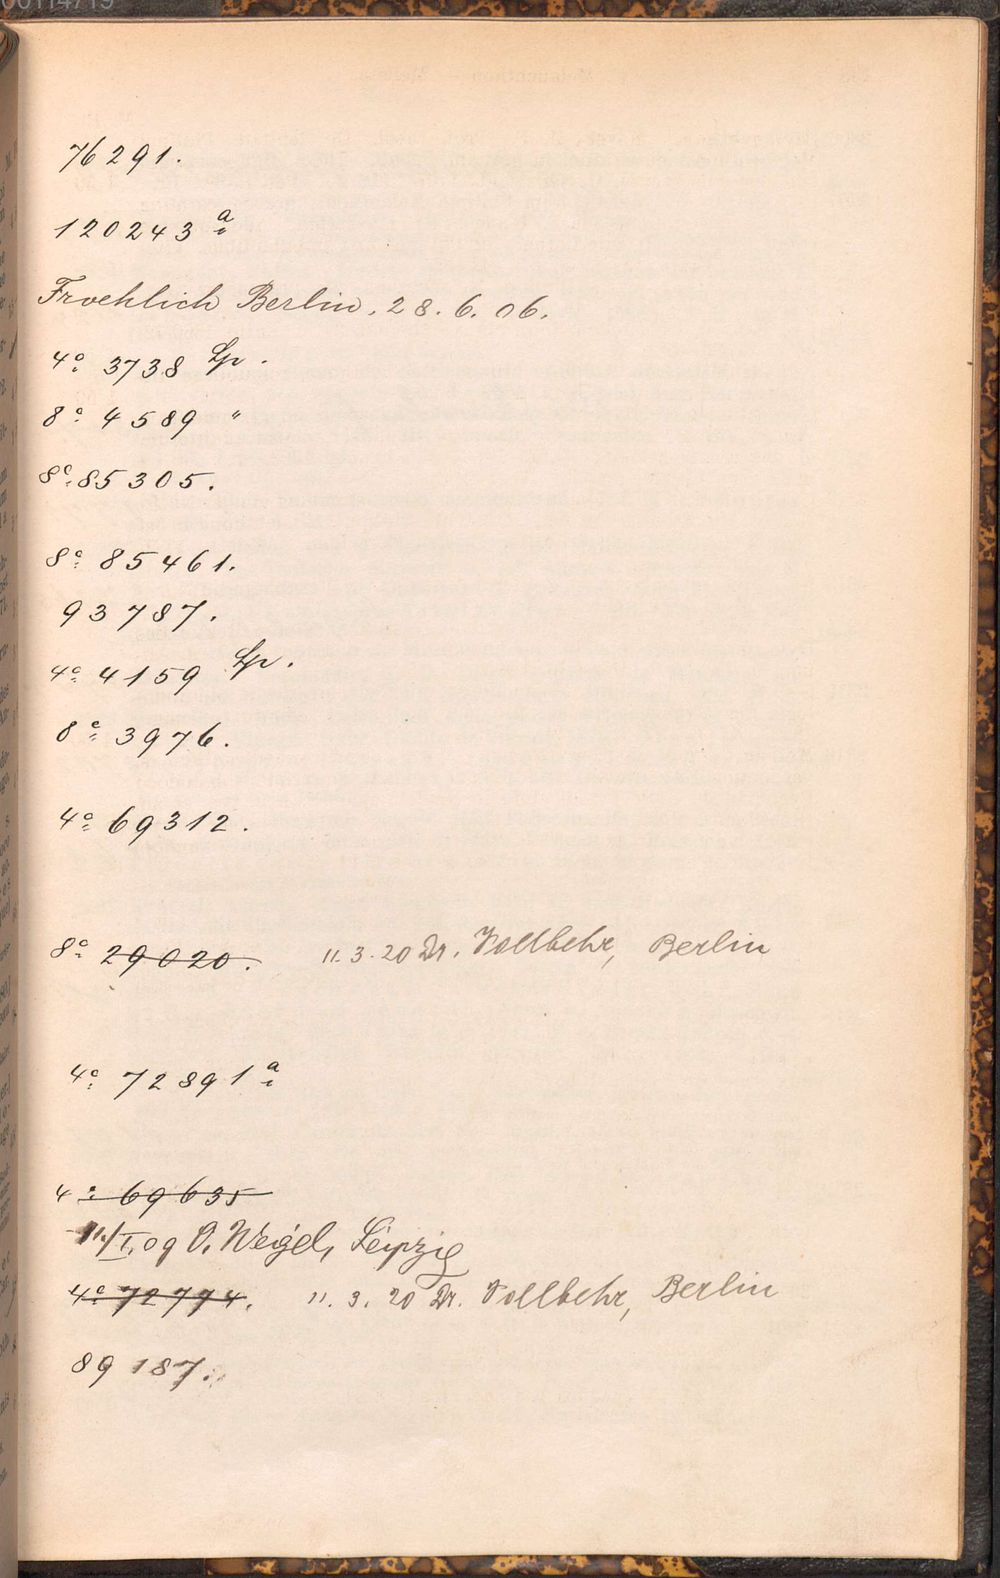 76291.
120243ª
Froehlich Berlin, 28. 6. 06.
4º 3738 Lp.
8º 4589 "
8º 85305.
8º 85461.
93787.
4º 4159 Lp.
8º 3976.
4º 69312.
8º 29020. 11. 3. 20 Dr. Vollbehr, Berlin
4º 72891ª
4º 69635
11./I. 09 O. Weigel, Leipzig
4º 72774. 11. 3. 20 Dr. Vollbehr, Berlin
89187.